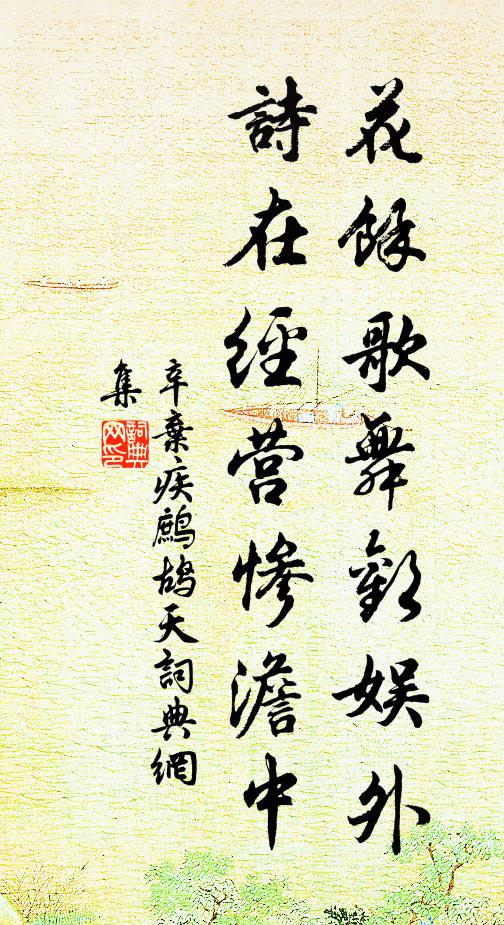 花餘歌舞歡娛外
詩在經營慘澹中
辛棄疾鷓鴣天詞典網
集
詞典网印